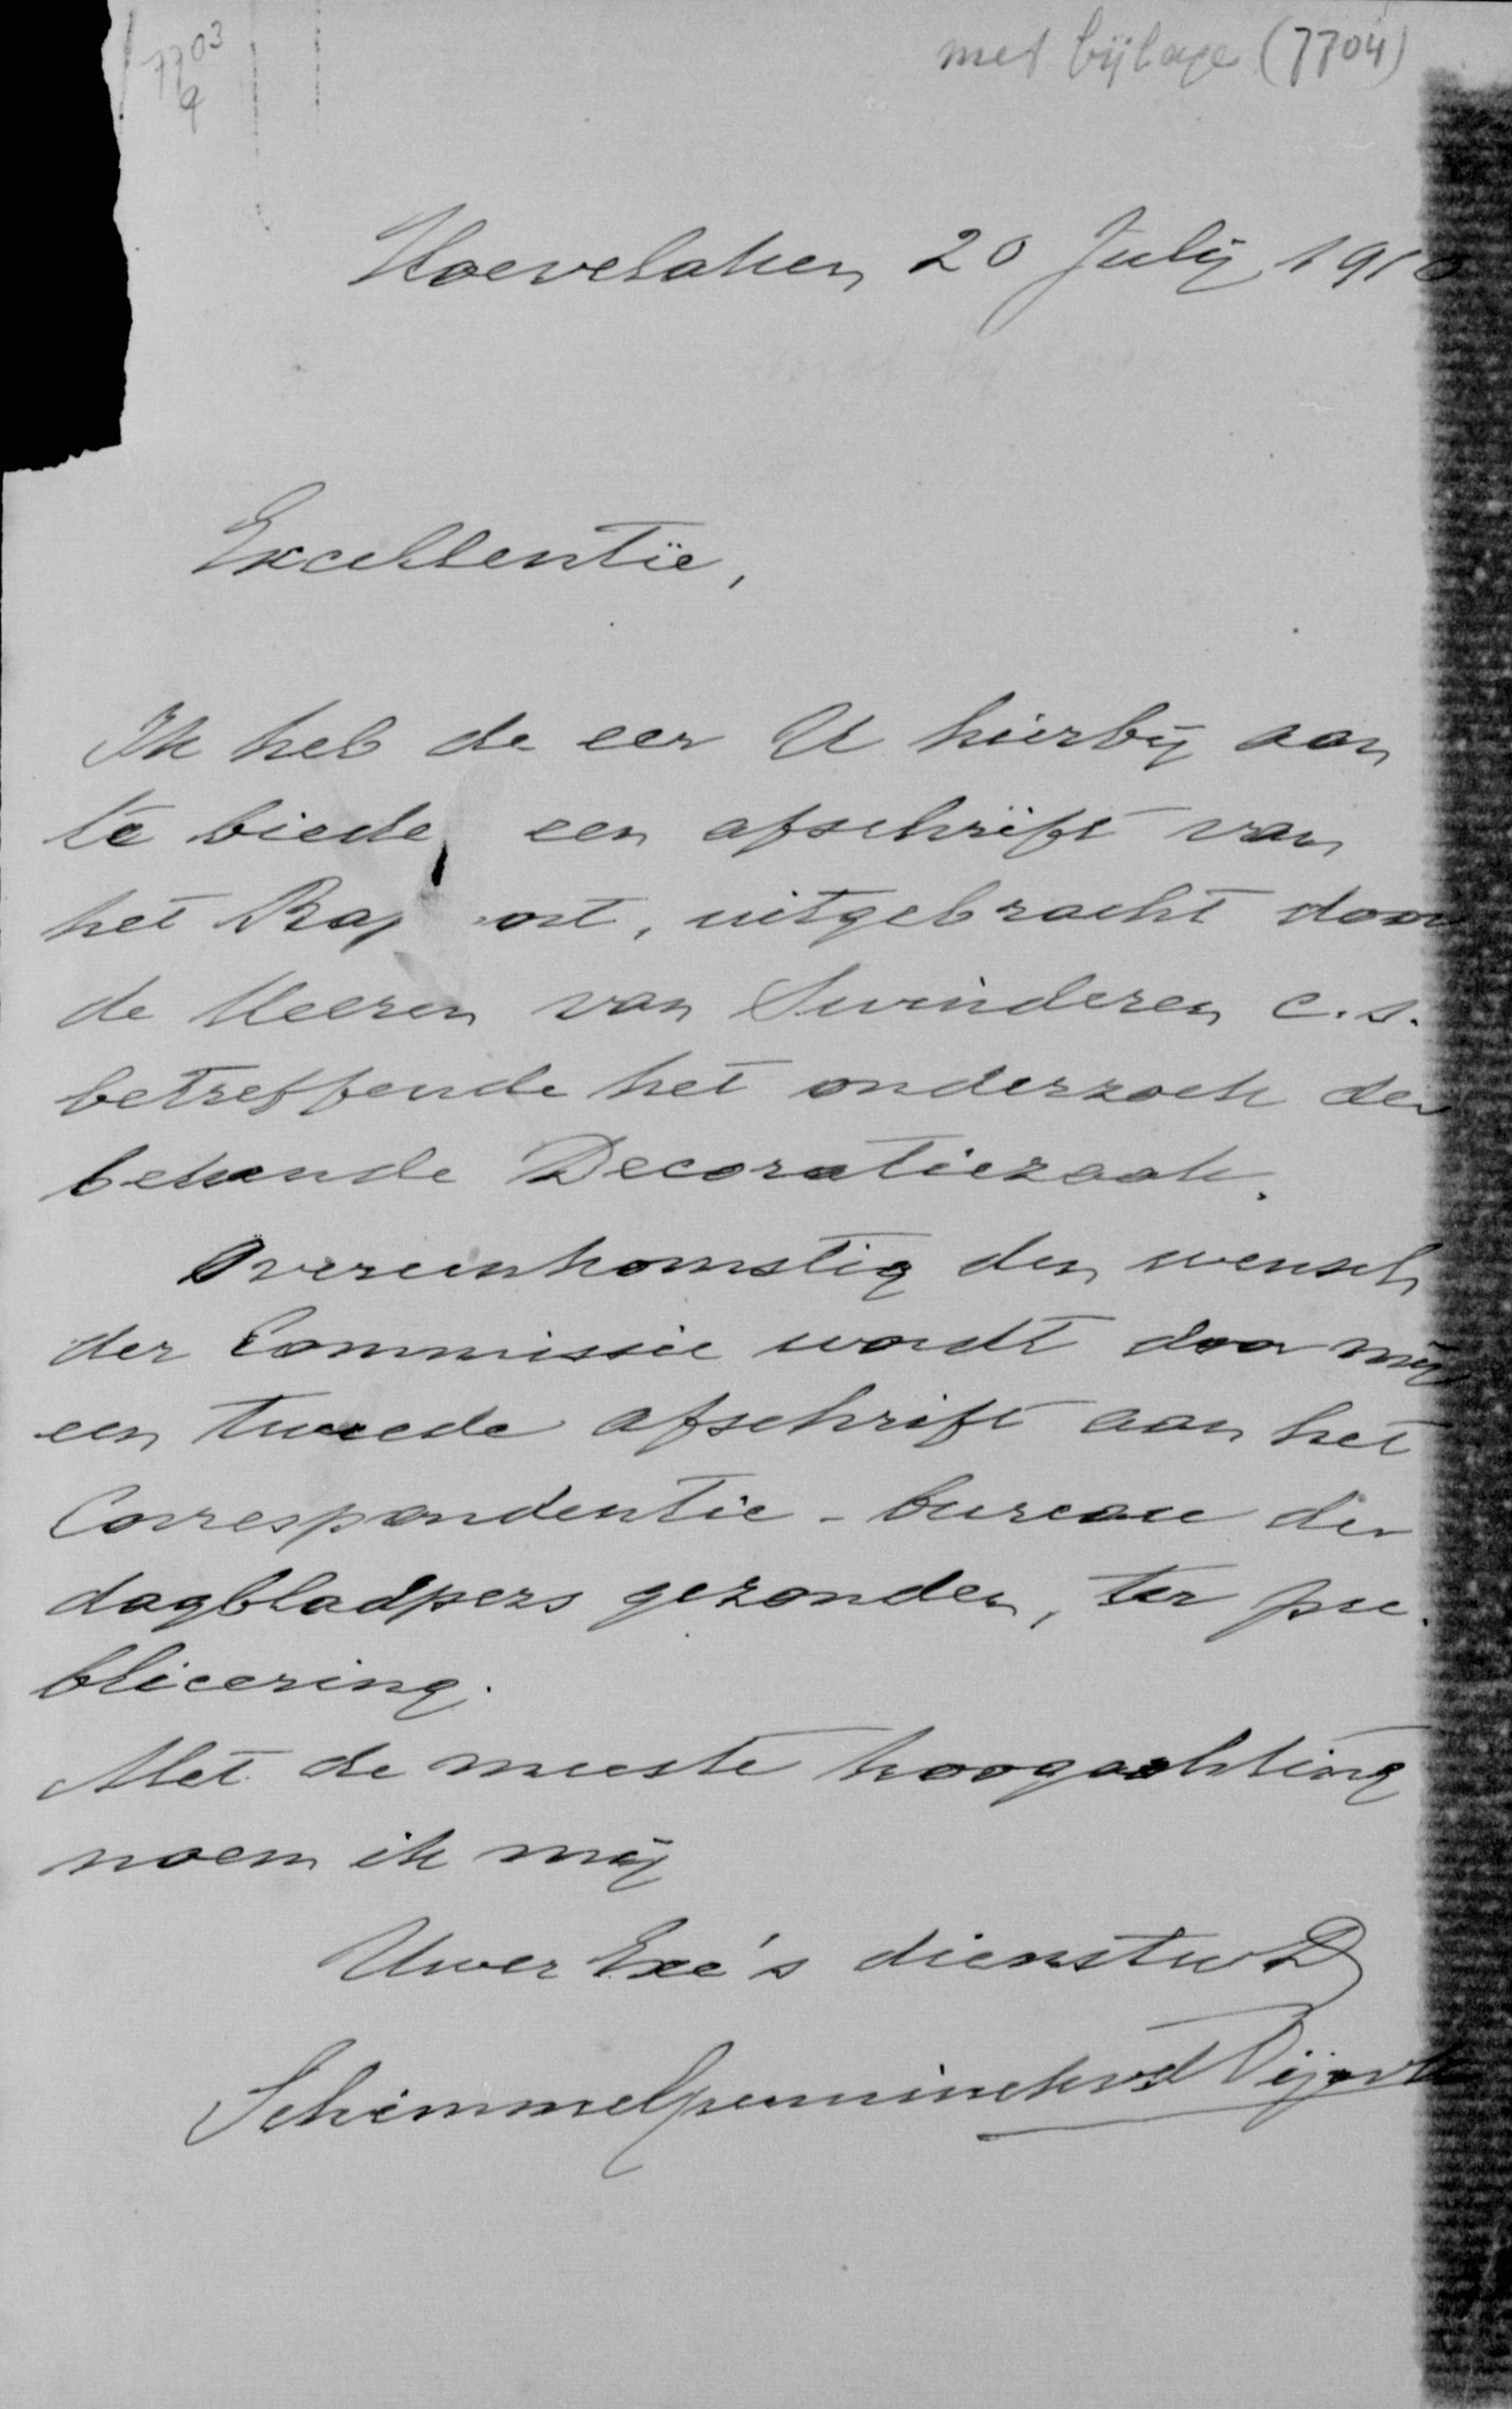 7703
a
met bijlage (7704)
Hoevelaken 20 July 1910
Excellentie,
Ik heb de eer U hierbij aan
te biede een afschrift van
het Rapport, uitgebracht door
de Heeren van Swinderen c.s.
betreffende het onderzoek der
bekende Decoratiezaak.
Overeenkomstig den wensch
der Commissie wordt door mij
een tweede afschrift aan het
Correspondentie-bureau der
dagbladpers gezonden, ter pu-
blicering.
Met de meeste hoogachting
noem ik mij
Uwer Exc's dienstw D
Schimmelpenninck vd Oije